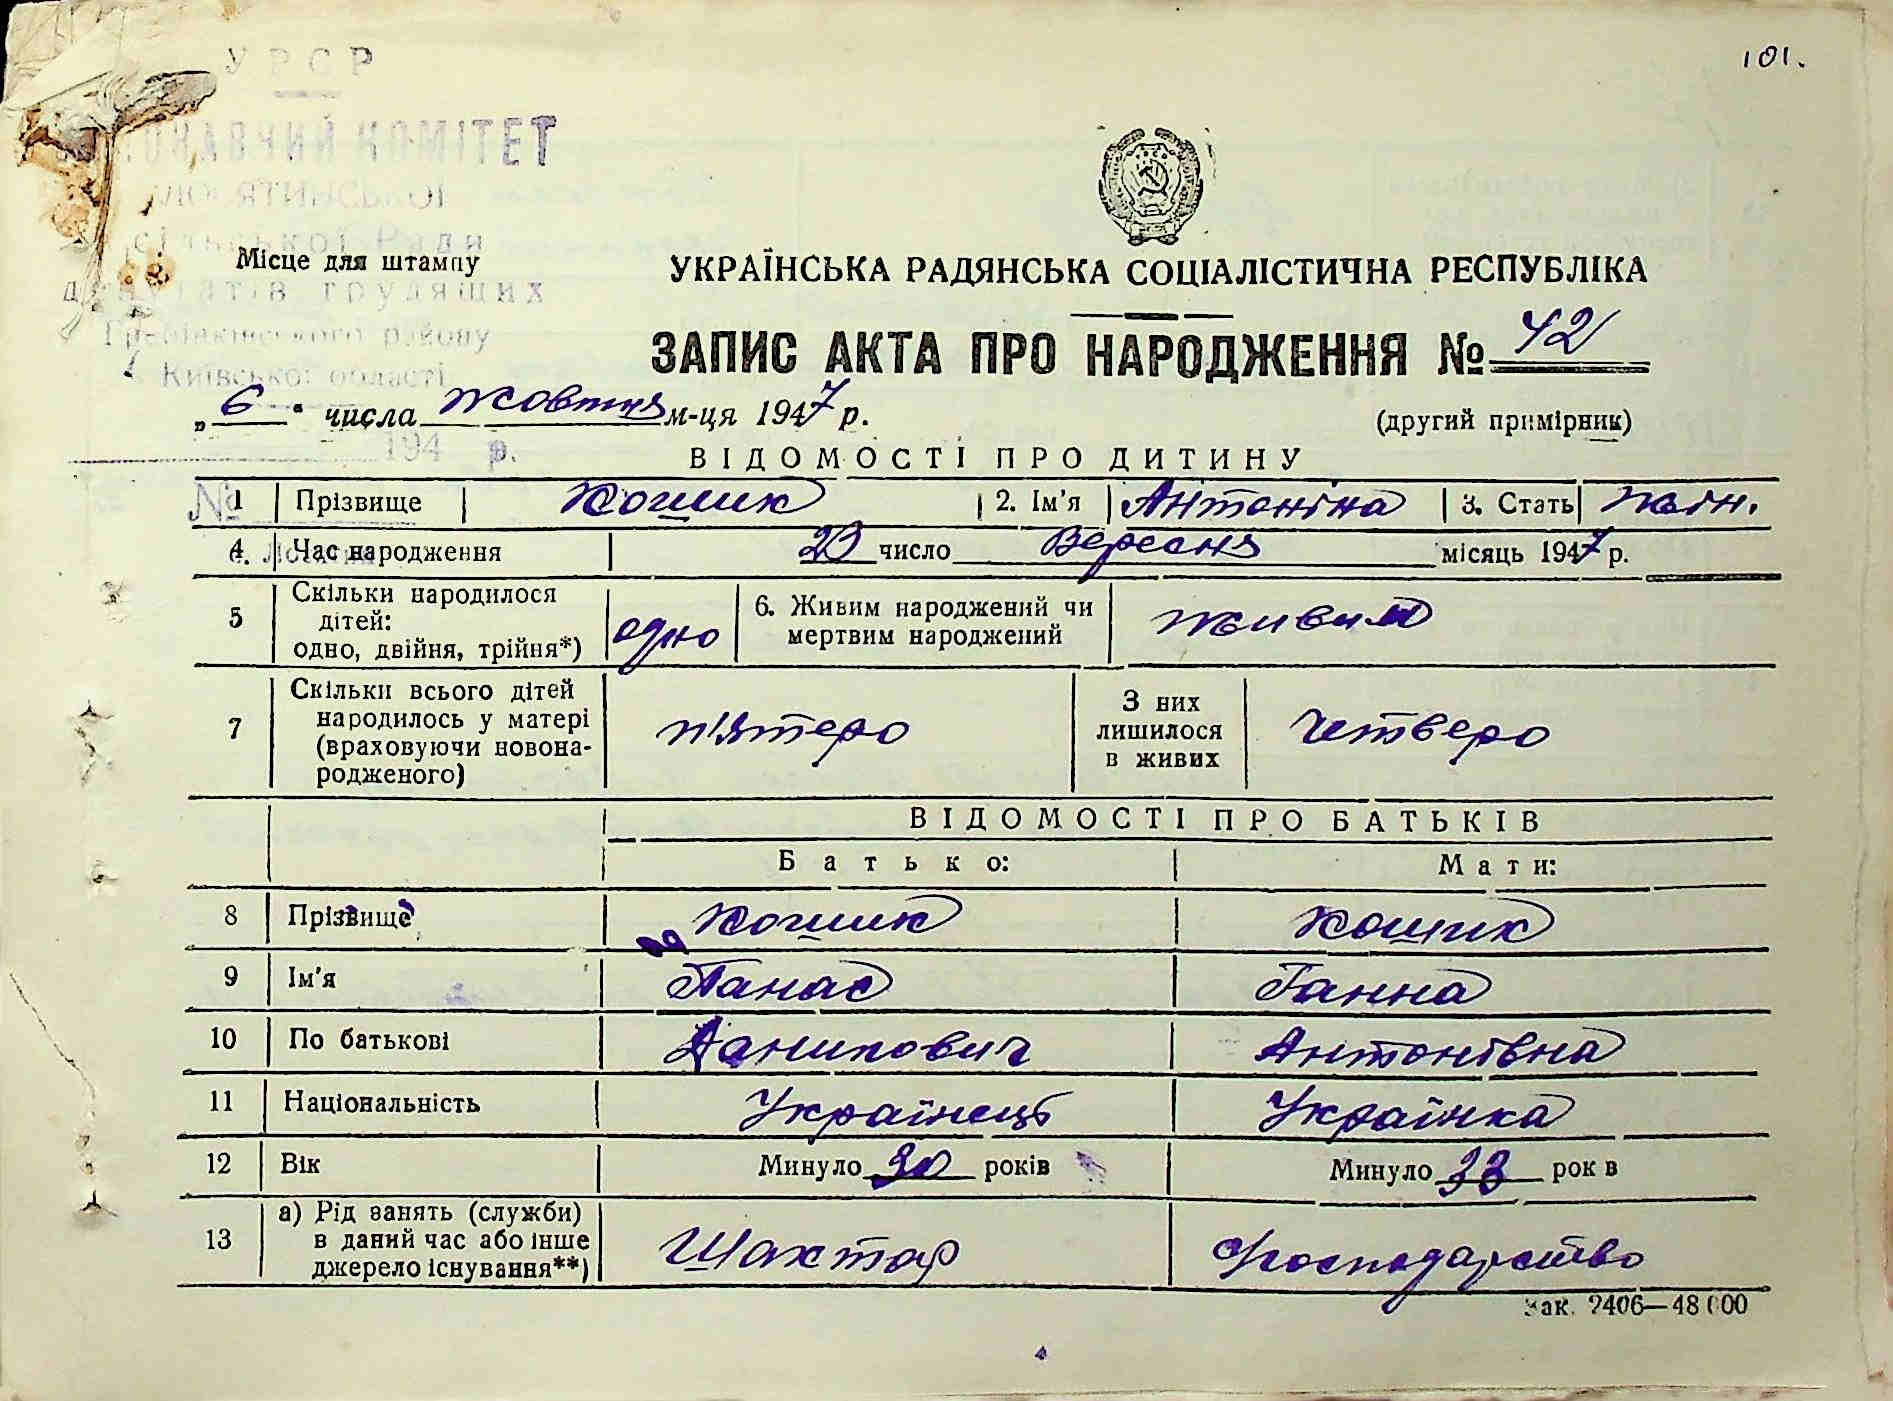 101.
УРСР
КОМІТЕТ
сільської Ради
Місце для штампу
депутатів трудящих
Гребінківського району
Київської області
194 р.
№
УКРАЇНСЬКА РАДЯНСЬКА СОЦІАЛІСТИЧНА РЕСПУБЛІКА
ЗАПИС АКТА ПРО НАРОДЖЕННЯ № 42
„ 6 “ числа Жовтня м-ця 1947 р.
(другий примірник)
ВІДОМОСТІ ПРО ДИТИНУ
1 Прізвище Кошик 2. Ім'я Антоніна 3. Стать жін.
4. Час народження 23 число Вересня місяць 1947 р.
5 Скільки народилося дітей: одно, двійня, трійня*) одно 6. Живим народжений чи мертвим народжений живим
7 Скільки всього дітей народилось у матері (враховуючи новонародженого) п'ятеро З них лишилося в живих четверо
ВІДОМОСТІ ПРО БАТЬКІВ
Батько: Мати:
8 Прізвище Кошик Кошик
9 Ім'я Панас Ганна
10 По батькові Данилович Антонівна
11 Національність Українець Українка
12 Вік Минуло 30 років Минуло 33 рок в
13 а) Рід занять (служби) в даний час або інше джерело існування**) Шахтар Господарство
Зак. 2406—48000